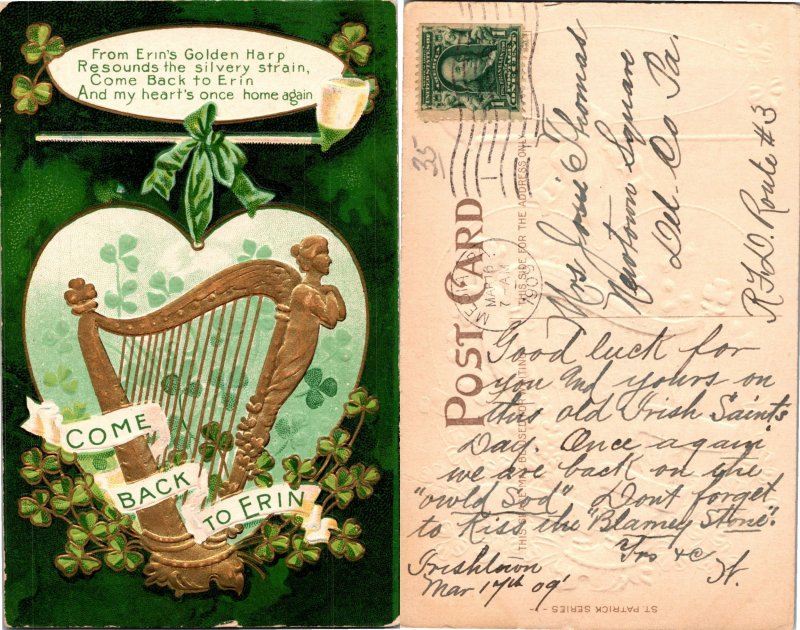 From Erin's Golden Harp
Resounds the silvery strain,
Come Back to Erin
And my heart's once home again
COME
BACK
TO ERIN
35
MAR 16
7-AM
1909
POST CARD
THIS SIDE FOR THE ADDRESS ONLY
Mrs Josie Thomas
Newtown Square
Del. Co Pa.
R.F.D. Route #3
Good luck for
you and yours on
this old Irish Saints
Day. Once again
we are back on the
"owld Sod" Dont forget
to Kiss the "Blarney Stone".
Yrs &c
H.
Irishtown
Mar 17th 09'
ST. PATRICK SERIES